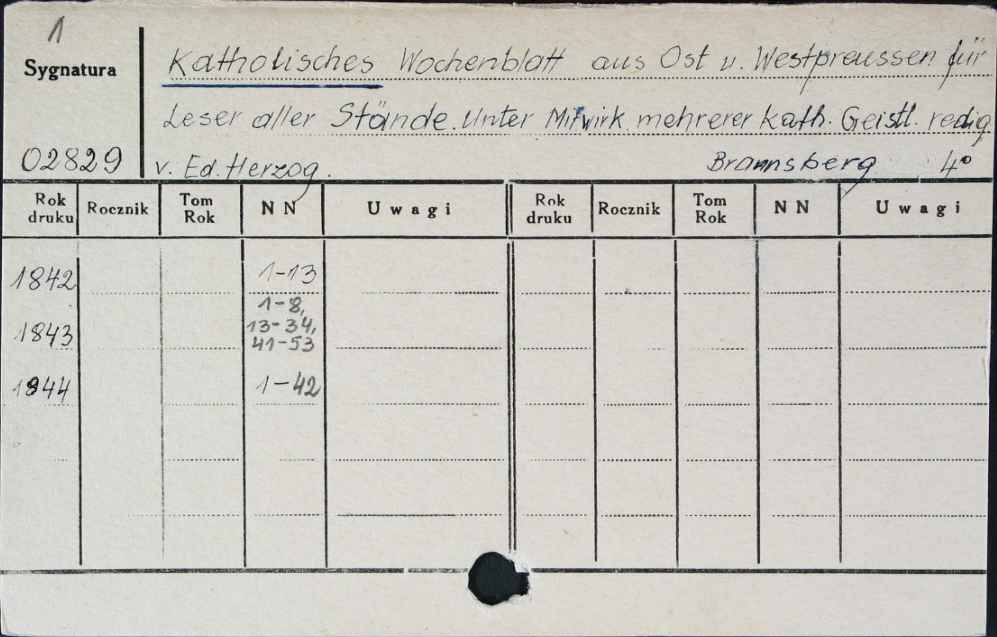 1
Sygnatura
Katholisches Wochenblatt aus Ost u. Westpreussen für
Leser aller Stände. Unter Mitwirk. mehrerer kath. Geistl. redig
02829
v. Ed. Herzog. Braunsberg 4°
Rok druku Rocznik Tom Rok NN Uwagi Rok druku Rocznik Tom Rok NN Uwagi
1842 1-13
1843 1-8,
13-34,
41-53
1844 1-42